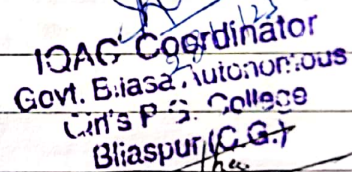 IQAC Coordinator
Govt. Bilasa Autonomous
Girl's P. G. College
Bilaspur (C.G.)